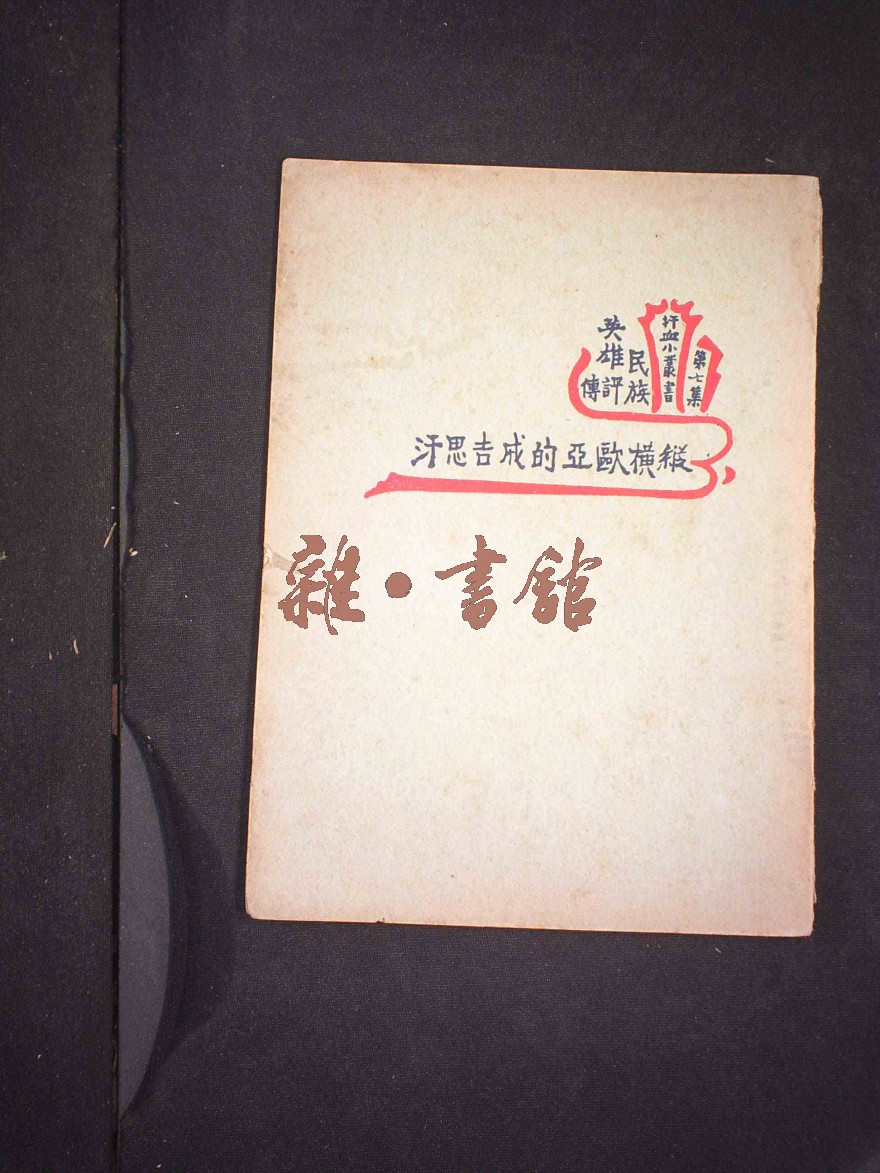 第七集
汗血小叢書
民族
英雄
評傳
縱橫歐亞的成吉思汗
雜•書館